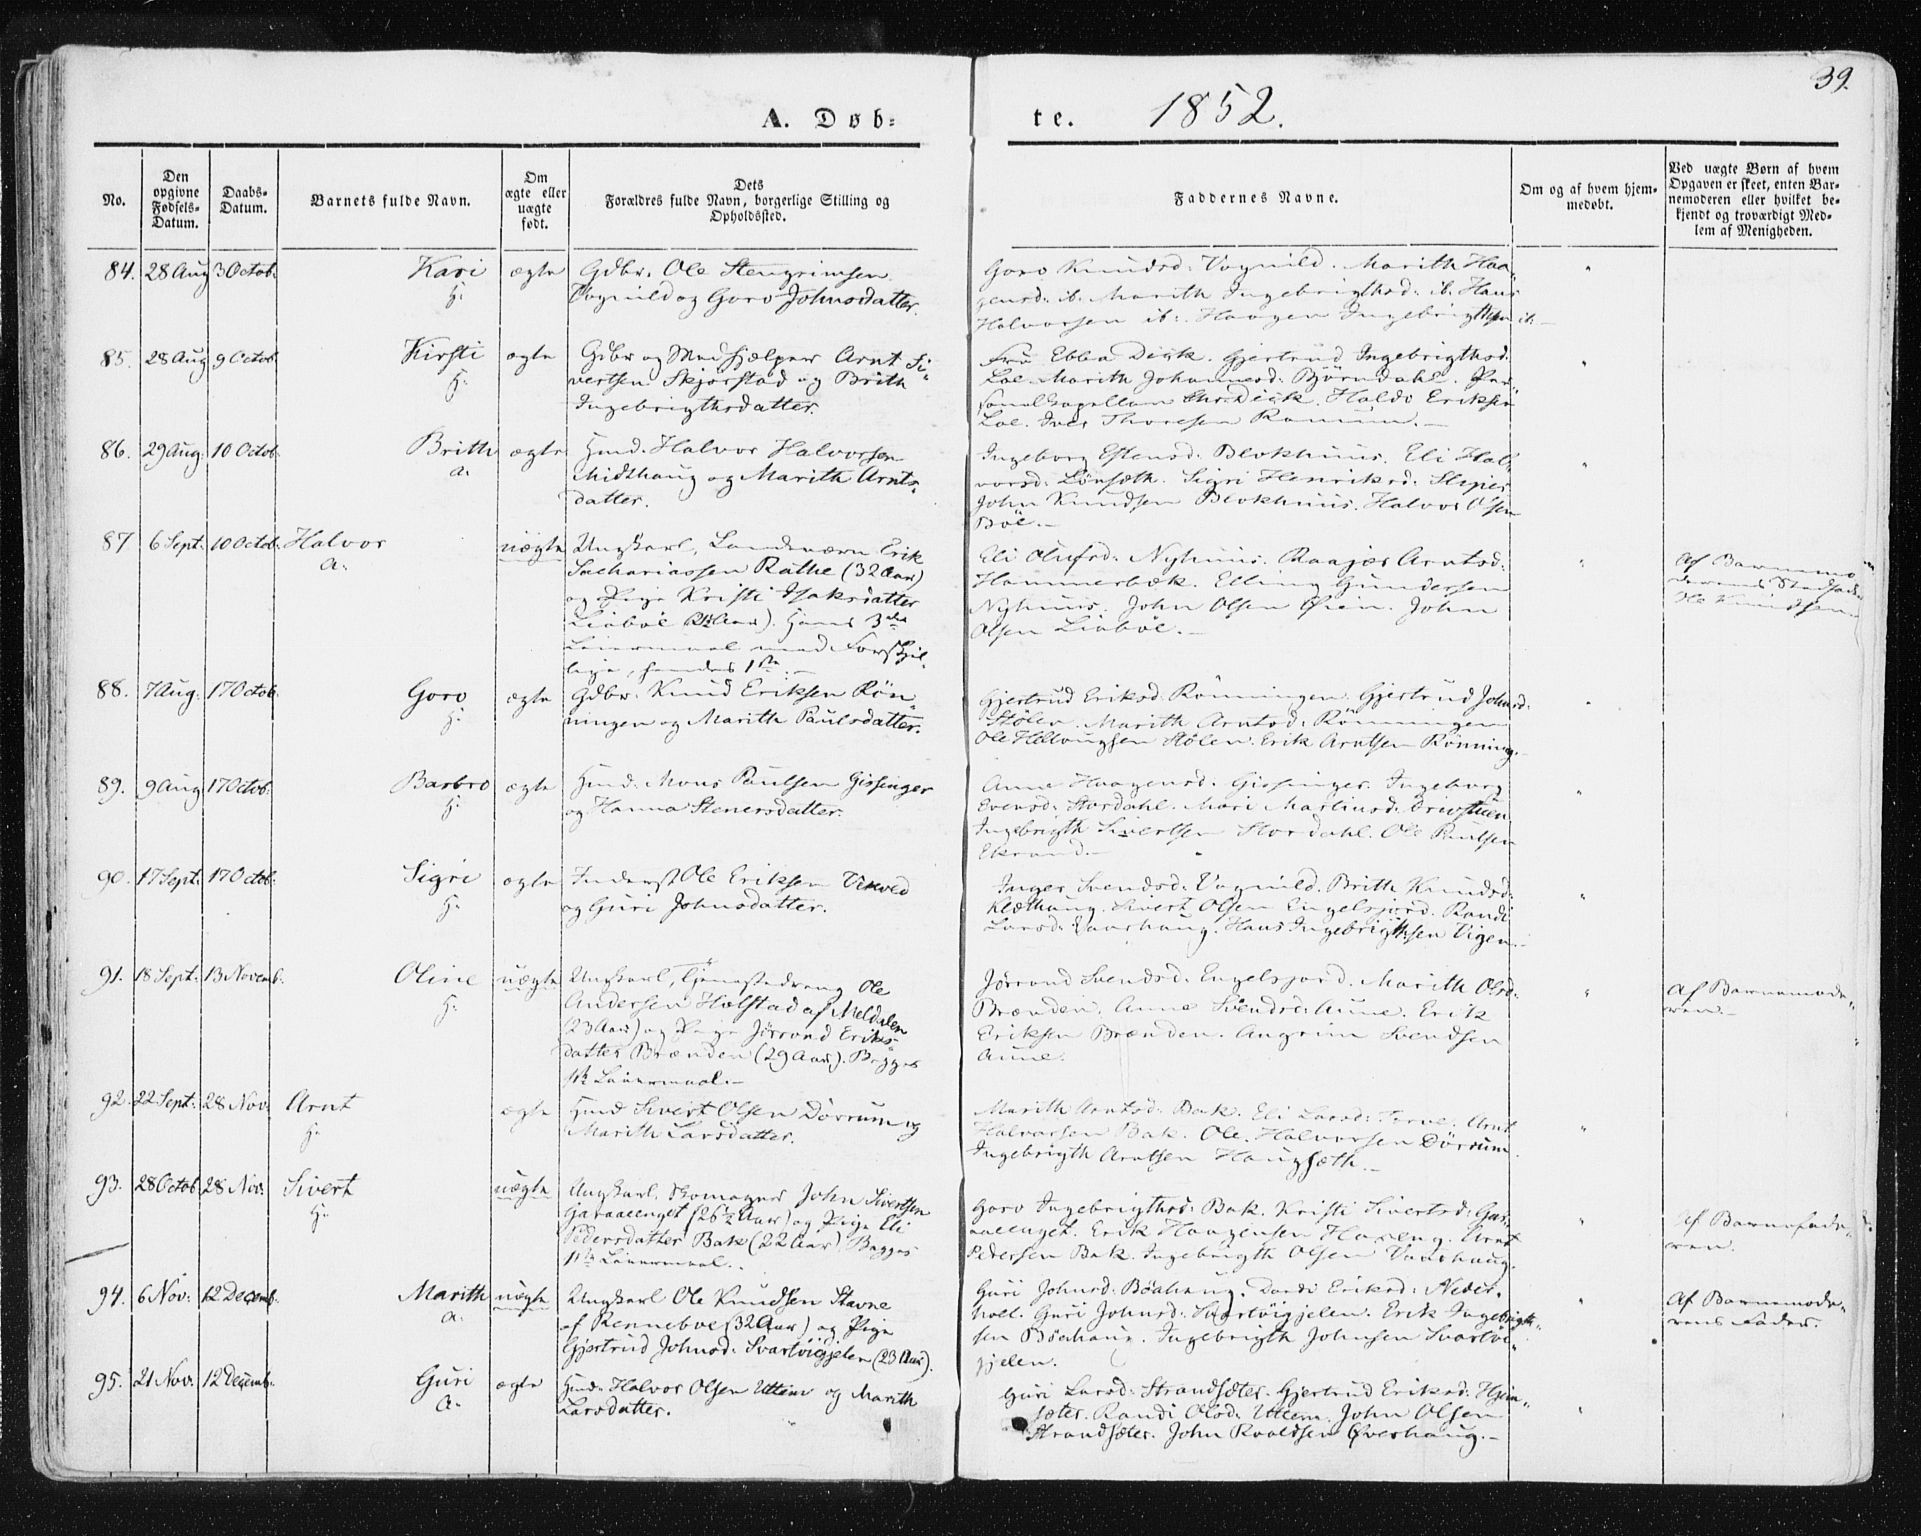 39.
A. Døb-
te. 1852.
No.
Den opgivne Fødsels-Datum.
Daabs-Datum.
Barnets fulde Navn.
Om ægte eller uægte født.
Dets Forældres fulde Navn, borgerlige Stilling og Opholdssted.
Faddernes Navne.
Om og af hvem hjem-medøbt.
Ved uægte Børn af hvem Opgaven er skeet, enten Bar-nemoderen eller hvilket be-kjendt og troværdigt Med-lem af Menigheden.
84. 28 Aug 3 Octob: Kari ægte Gdbr. Ole Stengrimsen
H.
Vognild og Goro Johnsdatter.
Goro Knudsd: Vognild. Marith Haa-
gensd: ib. Marith Ingebrigthsd: ib. Hans
Halvorsen ib: Haagen Ingebrigthsen ib.
85. 28 Aug 9 Octob Kirsti ægte Gdbr og Medhjælper Arnt Si-
H.
vertsen Skjørstad og Brith
Ingebrigthsdatter.
Fru Ebba Dick. Gjertrud Ingebrigthsd:
Loe. Marith Johannesd: Björndahl. Per-
sonelkapellan Dick. Haldo Eriksen
Loe. Iver Thoresen
86. 29 Aug: 10 Octob: Brith ægte Hmd. Halvor Halvorsen
a.
Midthaug og Marith Arnts-
datter.
Ingeborg Estensd: Blokhuus. Eli Hal-
vorsd: Lönsæth. Sigri Henriksd:
John Knudsen Blokhuus. Halvor Olsen
Böe.
87 6 Sept: 10 Octob: Halvor uægte Ungkarl, Landeværn Erik
a.
Sachariassen Rathe (32 Aar)
og Pige Kristi Isaksdatter
Liaböe Hans 3die
Leiermaal med Forskjel-
lige, hendes 1ste.
Eli Olufsd: Nyhuus. Arntsd:
Hammerbek. Elling Gundersen
Nyhuus. John Olsen Øien. John
Olsen Liaböe.
Af Barnemo-
derens Stedfader
Ole Knudsen
88. 7 Aug: 17 Octob: Goro ægte Gdbr. Knud Eriksen Rön-
H.
ningen og Marith Paulsdatter.
Gjertrud Eriksd: Rönningen. Gjertrud Johnsd:
Stölen. Marith Arntsd: Rönningen
Ole Stölen. Erik Arntsen Rönning.
89. 9 Aug 17 Octob: Barbro ægte Hmd. Mons Paulsen Gissinger
H.
og Hanna Stenersdatter.
Anne Haagensd: Gissinger. Ingeborg
Evensd: Stordahl. Mari Martinsd: Drivstuen
Ingebrigth Sivertsen Stordahl. Ole Paulsen
Ekrand.
90. 17 Sept: 17 Octob: Sigri ægte Inderst Ole Eriksen
H.
og Guri Johnsdatter.
Inger Svendsd: Vognild. Brith Knudsd:
Klethaug. Sivert Olsen Engelsjord. Randi
Larsd: Vaarhaug. Hans Ingebrigthsen Vigen.
91. 18 Sept: 13 Novemb. Oline uægte Ungkarl, Tjenestedreng Ole
H.
Andersen Holstad af Meldalen
(23 Aar) og Pige Jörrond Eriks-
datter Brænden (29 Aar). Begges
1ste Leiermaal.
Jörrond Svendsd: Engelsjord. Marith Olsd:
Brænden. Anne Svendsd: Aune. Erik
Eriksen Brænden. Angrim Svendsen
Aune.
Af Barnemode-
ren.
92. 22 Sept: 28 Nov: Arnt ægte Hmd Sivert Olsen Dörrum og
H.
Marith Larsdatter.
Marith Arntsd: Bak. Eli Larsd: Arnt
Halvorsen Bak. Ole Halvorsen Dörrum.
Ingebrigth Arntsen Haugsæth.
93. 28 Octob 28 Nov: Sivert uægte Ungkarl, Skomager John Sivertsen
H.
Garaaeenget (26½ Aar) og Pige Eli
Pedersdatter Bak (22 Aar) Begges
1ste Leiermaal.
Goro Ingebrigthsd: Bak. Kristi Sivertsd: Gar-
aaeenget. Erik Haagensen Arnt
Pedersen Bak. Ingebrigth Olsen Vaarhaug.
Af Barnefade-
ren.
94. 6 Nov: 12 Decemb. Marith uægte Ungkarl Ole Knudsen Stavne
a.
af Renneboe (32 Aar) og Pige
Gjertrud Johnsd: Svartöigjelen (23 Aar).
Guri Johnsd: Böahaug. Dordi Eriksd: Neder-
hoel. Guri Johnsd: Svartöigjelen. Erik Ingebrigth-
sen Böahaug. Ingebrigth Johnsen Svartöi-
gjelen.
Af Barnemode-
rens Fader.
95. 21 Nov. 12 Decemb. Guri ægte Hmd. Halvor Olsen Uttem og Marith
a.
Larsdatter.
Guri Larsd: Strandsæter. Gjertrud Eriksd: Hjem-
sæter. Randi Olsd: Uttem. John Olsen
Strandsæter. John Roaldsen Øverhaug.